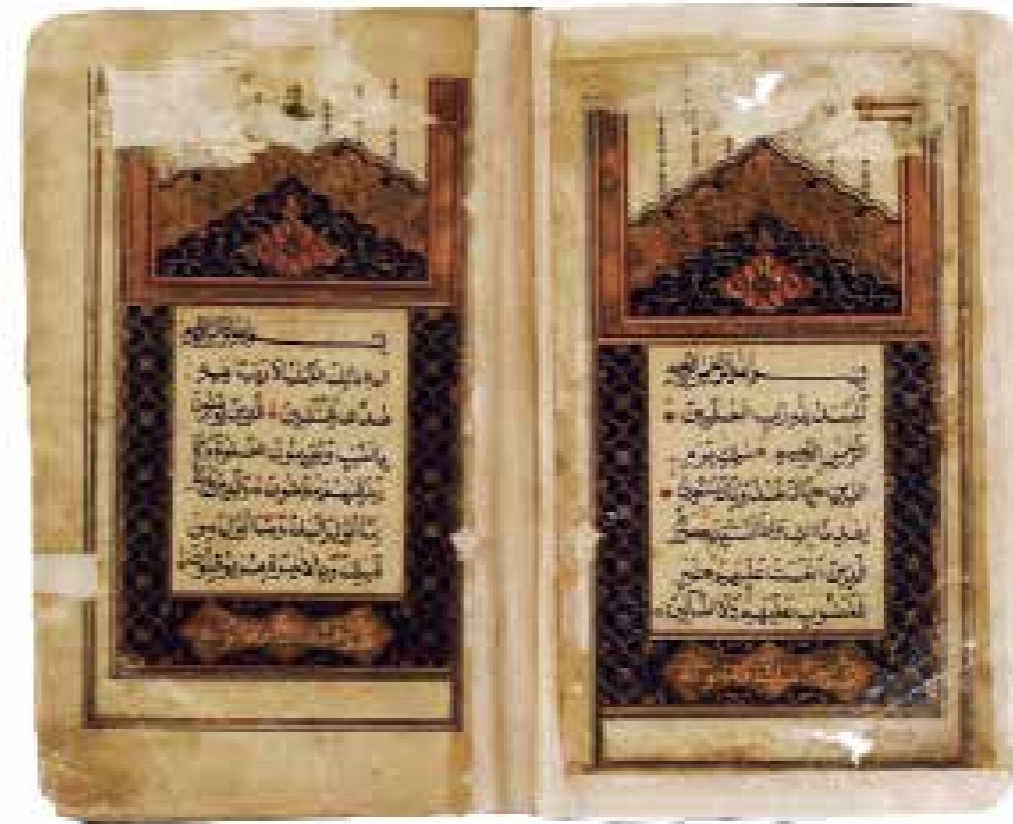 بسم الله الرحمن الرحيم
الحمد لله رب العالمين
الرحمن الرحيم ملك يوم
الدين اياك نعبد واياك نستعين
اهدنا الصراط المستقيم صراط
الذين انعمت عليهم غير
المغضوب عليهم ولا الضالين
بسم الله الرحمن الرحيم
الم ذلك الكتب لا ريب فيه
هدى للمتقين الذين يؤمنون
بالغيب ويقيمون الصلوة ومما
رزقنهم ينفقون والذين يؤمنون
بما انزل اليك وما انزل من
قبلك وبالاخرة هم يوقنون